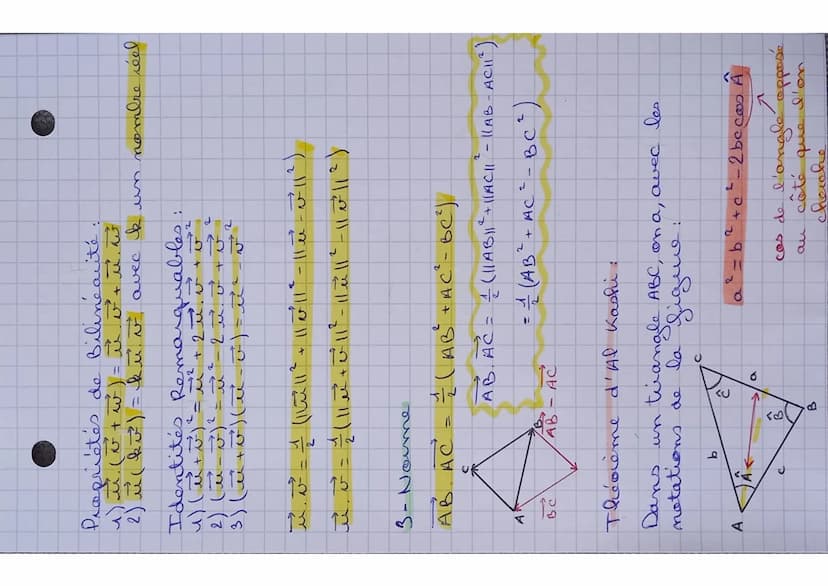 Propriétés de Bilinéarité:
1) u⃗.(v⃗+w⃗)=u⃗.v⃗+u⃗.w⃗
2) u⃗(kv⃗)=ku⃗v⃗ avec k un nombre réel
Identités Remarquables:
1) (u⃗+v⃗)²=u⃗²+2u⃗.v⃗+v⃗²
2) (u⃗-v⃗)²=u⃗²-2u⃗v⃗+v⃗²
3) (u⃗+v⃗)(u⃗-v⃗)=u⃗²-v⃗²
u⃗.v⃗=½(||u⃗||²+||v⃗||²-||u⃗-v⃗||²)
u⃗.v⃗=½(||u⃗+v⃗||²-||u⃗||²-||v⃗||²)
3-Norme
AB⃗.AC⃗=½(AB²+AC²-BC²)
C
A
B
BC⃗
AB⃗-AC⃗
AB⃗.AC⃗=½(||AB||²+||AC||²-||AB-AC||²)
=½(AB²+AC²-BC²)
Théorème d'Al Kashi:
Dans un triangle ABC, on a, avec les
notations de la figure:
A
Â
b
c
C
Ĉ
a
B̂
B
a²=b²+c²-2bccosÂ
cos de l'angle opposé
au côté que l'on
cherche